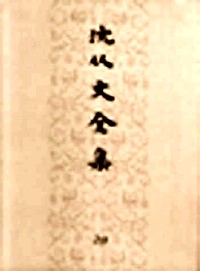 沈从文全集
20